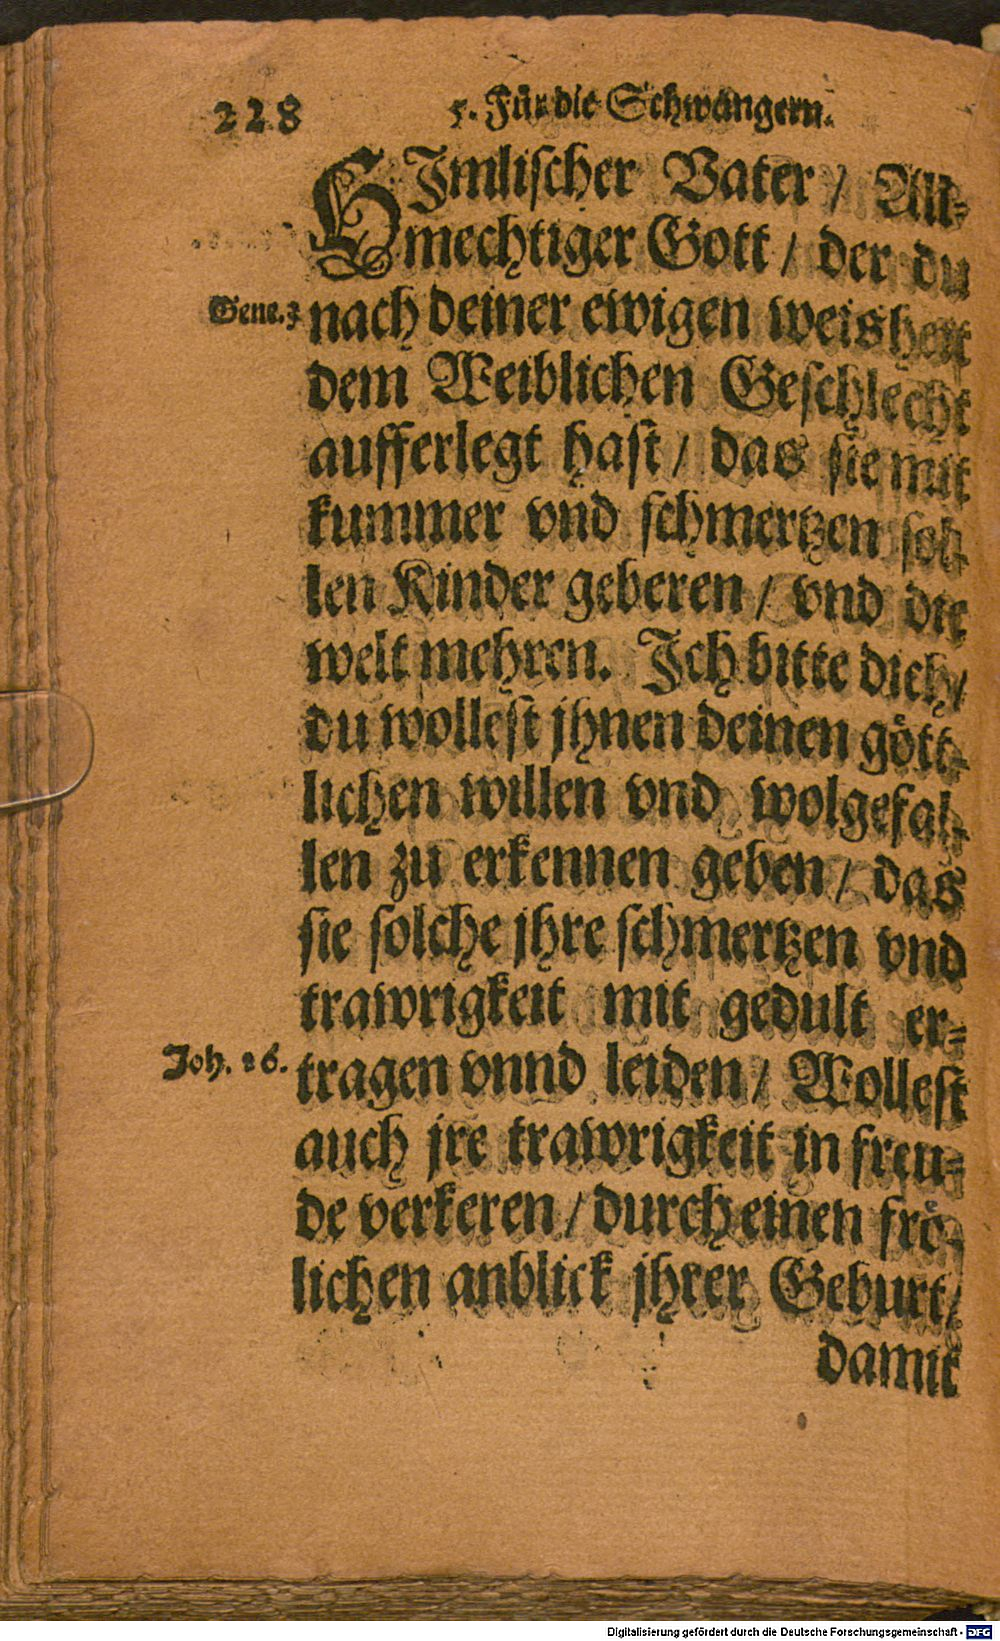 228 5. Für die Schwangern.
HImlischer Vater / All-
mechtiger Gott / der du
Gene. 3 nach deiner ewigen weisheit
dem Weiblichen Geschlecht
aufferlegt hast / das sie mit
kummer vnd schmertzen sol-
len Kinder geberen / vnd die
welt mehren. Ich bitte dich /
du wollest jhnen deinen gött-
lichen willen vnd wolgefal-
len zu erkennen geben / das
sie solche jhre schmertzen vnd
trawrigkeit mit gedult er-
Joh. 16. tragen vnnd leiden / Wollest
auch jre trawrigkeit in freu-
de verkeren / durch einen frö-
lichen anblick jhrer Geburt /
damit
Digitalisierung gefördert durch die Deutsche Forschungsgemeinschaft - DFG